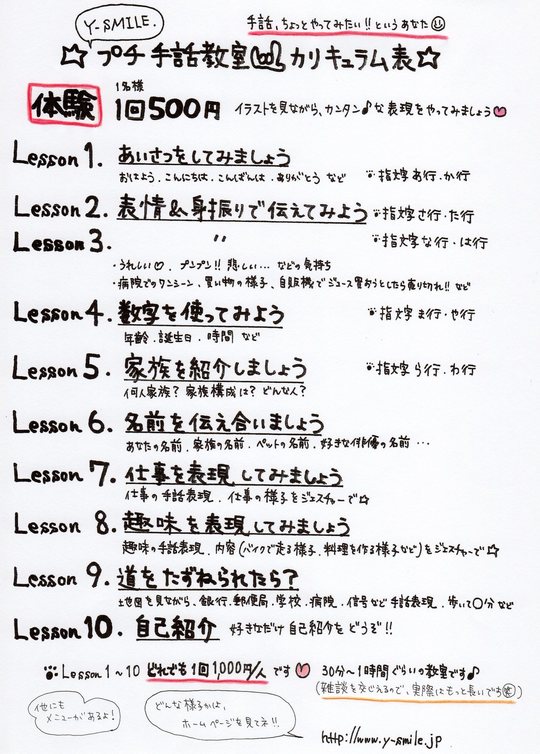 Y-SMILE.
手話、ちょっとやってみたい!!というあなた
☆プチ手話教室 カリキュラム表☆
体験 1名様 1回500円 イラストを見ながら、カンタン♪な表現をやってみましょう
Lesson 1. あいさつをしてみましょう
おはよう．こんにちは．こんばんは．ありがとう など 指文字 あ行．か行
Lesson 2. 表情&身振りで伝えてみよう 指文字 さ行．た行
Lesson 3. 〃 指文字 な行．は行
・うれしい♡．プンプン!! 悲しい… などの気持ち
・病院でのワンシーン、買い物の様子、自販機でジュース買おうとしたら売り切れ!! など
Lesson 4. 数字を使ってみよう 指文字 ま行．や行
年齢．誕生日．時間 など
Lesson 5. 家族を紹介しましょう 指文字 ら行．わ行
何人家族？家族構成は？どんな人？
Lesson 6. 名前を伝え合いましょう
あなたの名前．家族の名前．ペットの名前．好きな俳優の名前…
Lesson 7. 仕事を表現してみましょう
仕事の手話表現．仕事の様子をジェスチャーで☆
Lesson 8. 趣味を表現してみましょう
趣味の手話表現．内容(バイクで走る様子．料理を作る様子など)をジェスチャーで☆
Lesson 9. 道をたずねられたら？
土地図を見ながら、銀行．郵便局．学校．病院．信号など手話表現．歩いて○分 など
Lesson 10. 自己紹介 好きなだけ自己紹介をどうぞ!!
Lesson 1～10 どれでも1回1,000円/人です 30分～1時間ぐらいの教室です♪
(雑談を交じえるので、実際はもっと長いです笑)
他にもメニューがあるよ！
どんな様子かは、
ホームページを見てネ!!
http://www.y-smile.jp